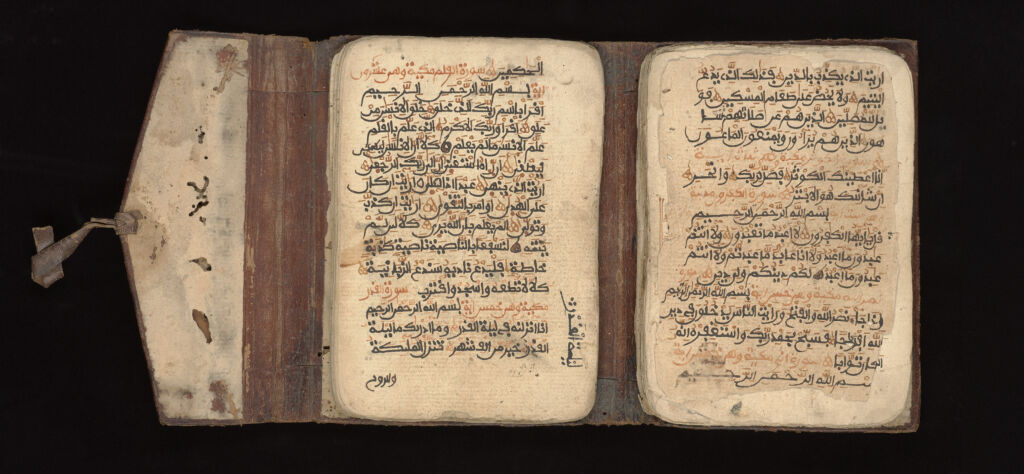 اريت الذي يكذب بالدين فذلك الذي يدع
اليتيم ولا يحض على طعام المسكين فو
يل للمصلين الذين هم عن صلاتهم سا
هون الذين هم يراءون ويمنعون الماعون
انا اعطينك الكوثر فصل لربك وانحر
ان شانئك هو الابتر سورة الكفرون
بسم الله الرحمن الرحيم
قل يايها الكفرون لا اعبد ما تعبدون ولا انتم
عبدون ما اعبد ولا انا عابد ما عبدتم ولا انتم
عبدون ما اعبد لكم دينكم ولي دين سورة
بسم الله الرحمن الرحيم
اذا جاء نصر الله والفتح ورايت الناس يدخلون في دين
الله افواجا فسبح بحمد ربك واستغفره انه
كان توابا سورة مكية وهي
بسم الله الرحمن الرحيم
الحكمين سورة القلم مكية وهي عشرون
اية بسم الله الرحمن الرحيم
اقرا باسم ربك الذي خلق خلق الانسن من
علق اقرا وربك الاكرم الذي علم بالقلم
علم الانسن ما لم يعلم كلا ان الانسن
ليطغى ان راه استغنى ان الى ربك الرجعى
اريت الذي ينهى عبدا اذا صلى اريت ان كان
على الهدى او امر بالتقوى اريت ان كذب
وتولى الم يعلم بان الله يرى كلا لين لم
ينته لنسفعا بالناصية ناصية كذبة
خاطئة فليدع ناديه سندع الزبانية
كلا لا تطعه واسجد واقترب سورة القدر
مكية وهي خمس اية بسم الله الرحمن الرحيم
انا انزلنه في ليلة القدر وما ادريك ما ليلة
القدر خير من الف شهر تنزل الملئكة
والروح
ليلة القدر